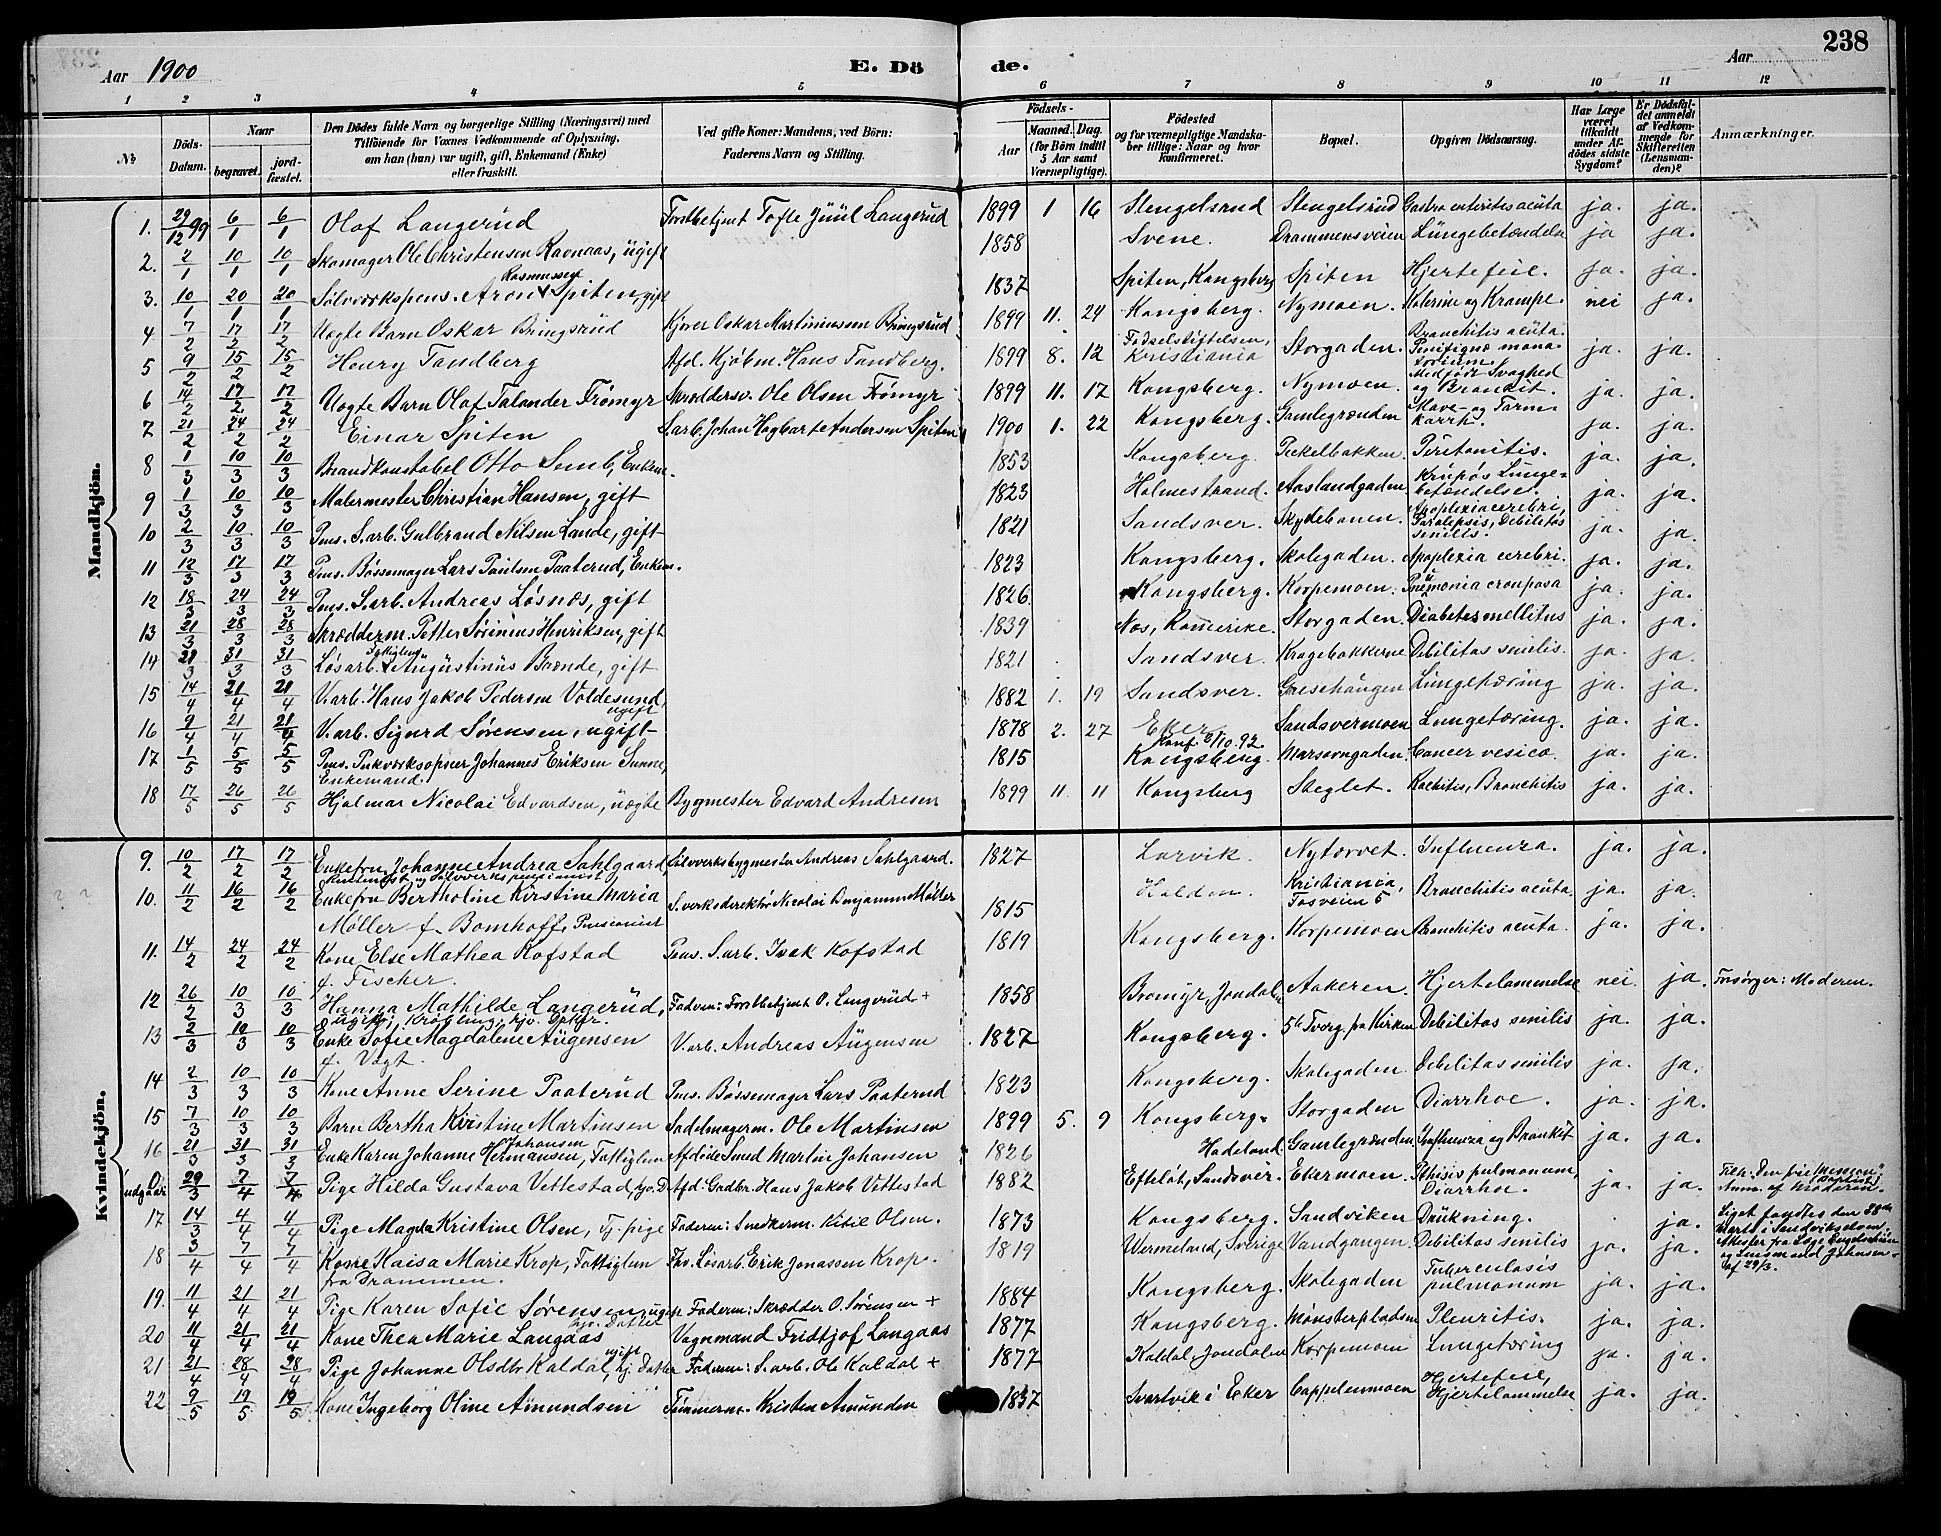 Aar 1900 E. Dö de. Aar 238
1 2 3 4 5 6 7 8 9 10 11 12
№ Döds-Datum. Naar begravet. jordfæstet. Den Dödes fulde Navn og borgerlige Stilling (Næringsvei) med Tilföiende for Voxnes Vedkommende af Oplysning, om han (hun) var ugift, gift, Enkemand (Enke) eller fraskilt. Ved gifte Koner: Mandens, ved Börn: Faderens Navn og Stilling. Födsels- Aar Maaned. Dag. (for Börn indtil 5 Aar samt Værnepligtige). Födested og for værnepligtige Mandskaber tillige: Naar og hvor konfirmeret. Bopæl. Opgiven Dödsaarsag. Har Læge været tilkaldt under Afdödes sidste Sygdom? Er Dödsfaldet anmeldt af Vedkommende for Skifteretten (Lensmanden)? Anmærkninger.
Mandkjön.
1. 29/12 99 6/1 6/1 Olaf Langerud Forstbetjent Tofte Juul Langerud 1899 1 16 Stengelsrud Stengelsrud Gastro enteritis acuta ja. ja.
2. 2/1 10/1 10/1 Skomager Ole Christensen Ravnaas, ugift 1858 Svene. Drammensveien Lungebetændelse ja ja.
3. 10/1 20/1 20/1 Sølvværkspens. Aron Rasmussen Spiten, gift 1837 Spiten, Kongsberg Spiten Hjertefeil. ja. ja.
4 7/2 17/2 17/2 Uægte Barn Oskar Bringsrud Kjører Oskar Martiniussen Bringsrud 1899 11. 24 Kongsberg. Nymoen. Kolerine og Krampe. nei ja.
5 9/2 15/2 15/2 Henry Tandberg Afd. Kjøbm. Hans Tandberg. 1899 8. 12 Fødselsstiftelsen, Kristiania Storgaden. Bronchitis acuta. ja. ja.
6 14/2 17/2 17/2 Uægte Barn Olaf Talander Frømyr Skræddersv. Ole Olsen Frømyr 1899 11. 17 Kongsberg. Nymoen. Medfødt Svaghed og Bronkit. ja. ja.
7 21/2 24/2 24/2 Einar Spiten S.arb. Johan Hagbart Andersen Spiten 1900 1. 22 Kongsberg. Gamlegrænden Mave- og Tarmkatrrh. ja. ja.
8 1/3 10/3 10/3 Brandkonstabel Otto Semb, Enkem. 1853 Kongsberg. Pukelbakken. Peritonitis. ja. ja.
9 1/3 10/3 10/3 Malermester Christian Hansen, gift 1823 Holmestrand. Aaslandgaden Krupøs Lungebetændelse. ja. ja.
10 2/3 10/3 10/3 Pens. S.arb. Gulbrand Nilsen Lande, gift 1821 Sandsver. Skydebanen. Apoplexia cerebri, Paralepsis, Debilitas senilis. ja. ja.
11 12/3 17/3 17/3 Pens. Bøssemager Lars Paulsen Paaterud, Enkem. 1823 Kongsberg. Skolegaden. Apoplexia cerebri. ja. ja.
12 18/3 24/3 24/3 Pens. S.arb. Andreas Løsnæs, gift 1826 Kongsberg. Korpemoen. Pneumonia crouposa ja. ja.
13 21/3 28/3 28/3 Skrædderm. Petter Sørinius Henriksen, gift 1839 Næs, Romerike. Storgaden. Diabetes mellitus ja. ja.
14 21/3 31/3 31/3 Løsarb. Augustinus Brænde, gift 1821 Sandsver. Kragebakkerne Debilitas senilis. ja. ja.
15 14/4 21/4 21/4 V.arb. Hans Jakob Pedersen Voldesund, ugift 1882 1. 19 Sandsver. Gresehaugen Lungetæring ja. ja.
16 9/4 21/4 21/4 V.arb. Sigurd Sørensen, ugift 1878 2. 27 Eker Konf. 2/10.92. Sandsvermoen Lungetæring. ja. ja.
17 1/5 5/5 5/5 Pens. Pukværksopsier Johannes Eriksen Sunne, Enkemand. 1815 Kongsberg Cancer vesicæ. ja. ja.
18 17/5 26/5 26/5 Hjalmar Nicolai Edvardsen, uægte Bygmester Edvard Andresen 1899 11 11 Kongsberg Steglet. Rachitis, Bronchitis ja. ja.
Kvindekjön.
9. 10/2 17/2 17/2 Enkefru Johanne Andrea Sahlgaard, Sølvverksbygmester Andreas Sahlgaard. 1827 Larvik. Nytorvet. Influenza. ja. ja.
10. 11/2 16/2 16/2 Enkefru Bertholine Kirstine Maria Møller f. Bomhoff, Pensionist S.verksdirektør Nicolai Benjamin Møller 1815 Halden. Kristiania, Fosveien 5 Bronchitis acuta. ja. ja.
11. 14/2 24/2 24/2 Kone Else Mathea Kofstad f. Fischer. Pens. S.arb. Isak Kofstad 1819 Kongsberg. Korpemoen Bronchitis acuta. ja. ja.
12 26/2 10/3 10/3 Hanna Mathilde Langerud, Faderen: Forstbetjent O. Langerud + 1858 Bromyr Jondalen Aakeren. Hjertelammelse nei. ja. Forsørger: Moderen.
13 2/3 10/3 10/3 Enke Sofie Magdalene Augensen f. Vogt. V.arb. Andreas Augensen 1827 Kongsberg. 5te Tverg. fra Kirken Debilitas senilis ja. ja.
14 2/3 10/3 10/3 Kone Anne Serine Paaterud Pens. Bøssemager Lars Paaterud 1823 Kongsberg. Skolegaden. Debilitas senilis ja. ja.
15 7/3 10/3 10/3 Barn Bertha Kirstine Martinsen Sadelmagerm. Ole Martinsen 1899 5. 9 Kongsberg. Storgaden Diarrhoe. ja. ja.
16 21/3 31/3 31/3 Enke Karen Johanne Hermansen, Johansen Fattiglem Afdøde Smed Martin Johansen 1826 Hadeland. Gamlegrænden Influenza og Bronkit ja. ja.
Udgaar 29/3 7/4 7/4 Pige Hilda Gustava Vettestad, hjv. D. Afd. Gadbr. Hans Jakob Vettestad 1882 Efteløt, Sandsvær. Ekermoen. Phthisis pulmonum, Diarrhoe. ja. ja. Tilh. "Den frie Mission" (Baptist) Anm. af Moderen.
17 14/3 4/4 4/4 Pige Magda Kristine Olsen, Tj. pige Faderen: Snedkerm. Kitil Olsen. 1873 Kongsberg. Sandviken Drukning. ja. Liget fandtes den 28de Marts i Sandviksdam. Attester fra Læge og Lensmand Johnsen af 29/3.
18 3/4 7/4 7/4 Kone Kaisa Marie Krop, Fattiglem fra Drammen. Løsarb. Erik Jonassen Krop. 1819 Wermeland, Sverige Vandgangen. Debilitas senilis ja. ja.
19. 11/4 21/4 21/4 Pige Karen Sofie Sørensen, ugift hjv. Datter Faderen: Skrædder O. Sørensen + 1884 Kongsberg. Skolegaden Tuberculosis pulmonum ja. ja.
20 11/4 21/4 21/4 Kone Thea Marie Langaas Vognmand Fridtjof Langaas 1877 Kongsberg. Mønsterpladsen Pleuritis. ja. ja.
21 21/4 28/4 28/4 Pige Johanne Olsdtr Kaldal, ugift hj. Datter Faderen: S.arb. Ole Kaldal + 1877 Kaldal, Jondalen Korpemoen Lungetæring ja. ja.
22 9/5 19/5 19/5 Kone Ingeborg Oline Amundsen Tømmerm. Kristen Amundsen 1837 Svartvik i Eker Cappelenmoen Hjertefeil, Hjertelammelse ja. ja.